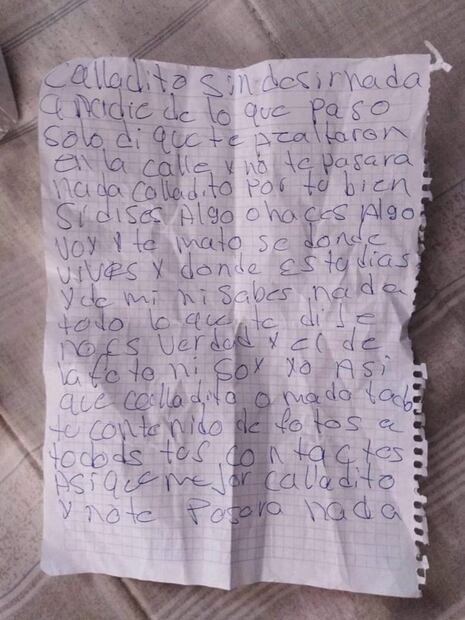 Calladito sin desirnada
a nadie de lo que paso
solo di que te Azaltaron
en la calle y no te pasara
nada calladito por tu bien
Si dises Algo o haces Algo
voy y te mato se donde
vives y donde Estudias
y de mi ni sabes nada
todo lo que te dije
no es verdad y el de
la foto ni soy yo Asi
que calladito o mado todo
tu contenido de fotos a
todods tus contactos
Asi que mejor calladito
y no te pasara nada